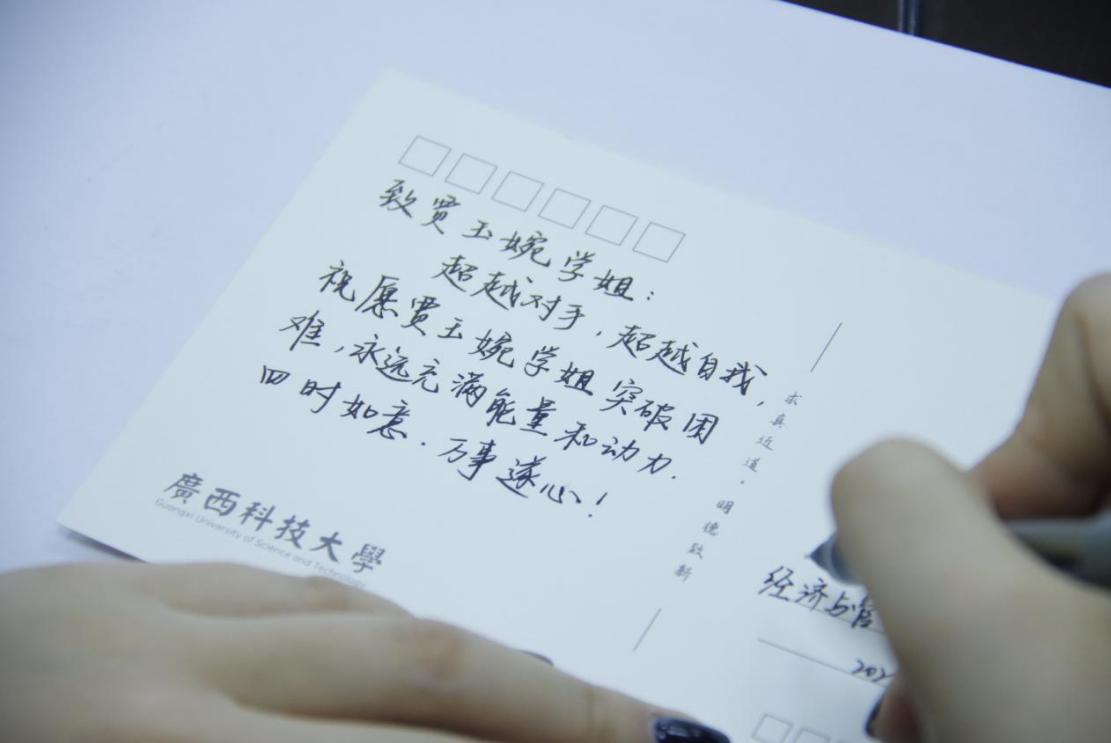 致贾玉婉学姐：
超越对手，超越自我，
祝愿贾玉婉学姐突破困
难，永远充满能量和动力．
四时如意．万事遂心！
廣西科技大學
Guangxi University of Science and Technology
求真近道·明德致新
经济与管
202